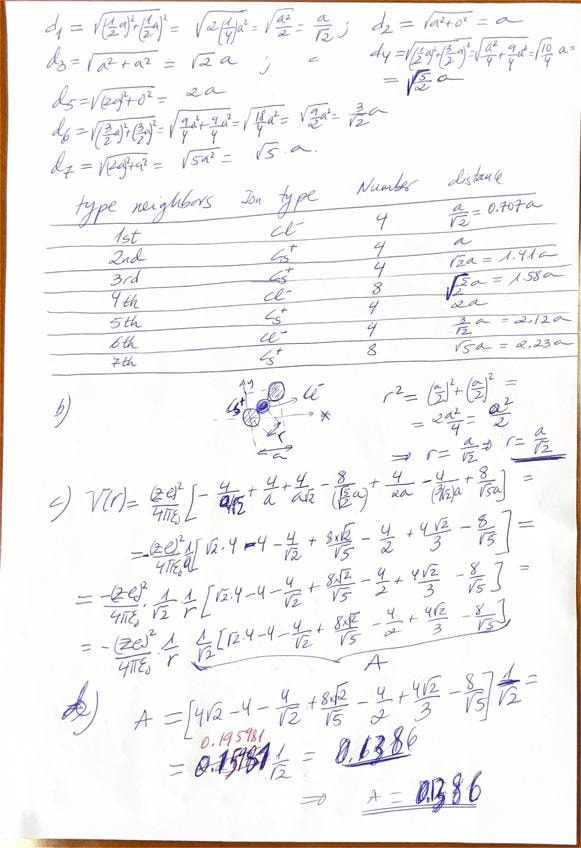 d1 = √((1/2 a)² + (1/2 a)²) = √(2(1/4)a²) = √(a²/2) = a/√2 ; d2 = √(a²+0²) = a
d3 = √(a² + a²) = √2 a ; d4 = √((1/2 a)² + (3/2 a)²) = √(a²/4 + 9/4 a²) = √(10/4) a =
= √(5/2) a
d5 = √((2a)²+0²) = 2a
d6 = √((3/2 a)² + (3/2 a)²) = √(9/4 a² + 9/4 a²) = √(18/4 a²) = √(9/2 a²) = 3/√2 a
d7 = √((2a)²+a²) = √(5a²) = √5 · a.
type neighbors Ion type Number distance
1st Cl⁻ 4 a/√2 = 0.707a
2nd Cs⁺ 4 a
3rd Cs⁺ 4 √2a = 1.41a
4th Cl⁻ 8 √(5/2)a = 1.58a
5th Cs⁺ 4 2a
6th Cl⁻ 4 3/√2 a = 2.12a
7th Cs⁺ 8 √5a = 2.23a
b) y Cs⁺ Cl⁻ x r a
r² = (a/2)² + (a/2)² =
= 2a²/4 = a²/2
⇒ r = a/√2 ⇒ r = a/√2
c) V(r) = (ze)²/4πε₀ [ - 4/(a/√2) + 4/a + 4/a√2 - 8/(√(5/2)a) + 4/2a - 4/(3/√2)a + 8/√5a ] =
= -(ze)²/4πε₀ 1/a [ √2·4 - 4 - 4/√2 + 8×√2/√5 - 4/2 + 4√2/3 - 8/√5 ] =
= -(ze)²/4πε₀ · 1/√2 · 1/r [ √2·4 - 4 - 4/√2 + 8×√2/√5 - 4/2 + 4√2/3 - 8/√5 ] =
= -(ze)²/4πε₀ · 1/r 1/√2 [ √2·4 - 4 - 4/√2 + 8×√2/√5 - 4/2 + 4√2/3 - 8/√5 ]
A
d) A = [ 4√2 - 4 - 4/√2 + 8×√2/√5 - 4/2 + 4√2/3 - 8/√5 ] 1/√2 =
0.195981
= 1/√2 = 0.1386
⇒ A = 0.1386